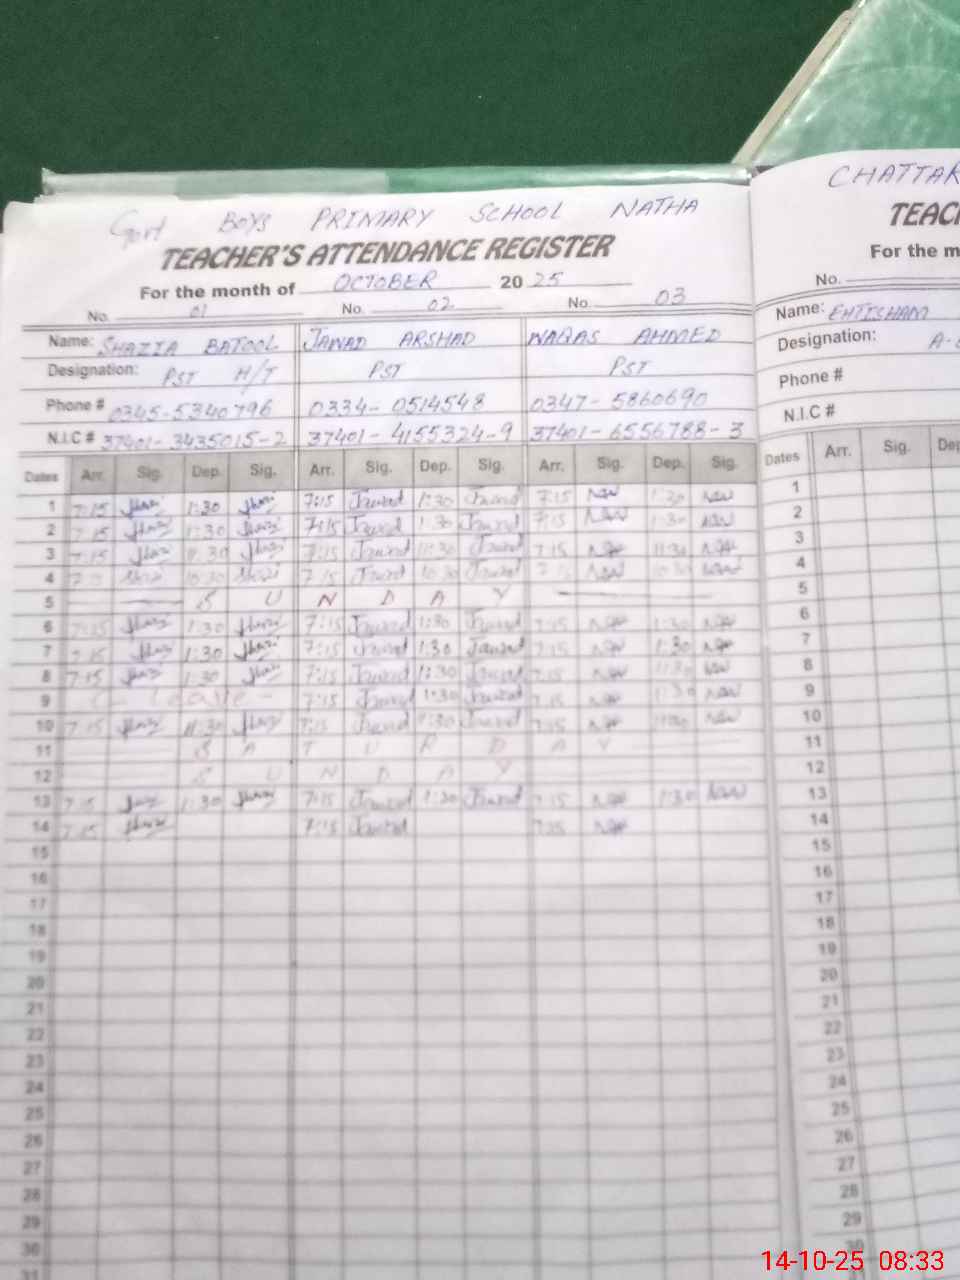 Govt BOYS PRIMARY SCHOOL NATHA
TEACHER'S ATTENDANCE REGISTER
For the month of OCTOBER 2025
No. 01 No. 02 No. 03
Name: SHAZIA BATOOL JAWAD ARSHAD WAQAS AHMED
Designation: PST H/T PST PST
Phone # 0345-5340796 0334-0514548 0347-5860690
N.I.C # 37401-3435015-2 37401-4155324-9 37401-6556788-3
Dates Arr. Sig. Dep. Sig. Arr. Sig. Dep. Sig. Arr. Sig. Dep. Sig.
1 7:15 1:30 7:15 Jawad 1:30 Jawad 7:15 1:30
2 7:15 1:30 7:15 Jawad 1:30 Jawad 7:15 1:30
3 7:15 11:30 7:15 Jawad 11:30 Jawad 7:15 11:30
4 7:15 10:30 7:15 Jawad 10:30 Jawad 7:15 10:30
5 S U N D A Y
6 7:15 1:30 7:15 Jawad 1:30 Jawad 7:15 1:30
7 7:15 1:30 7:15 Jawad 1:30 Jawad 7:15 1:30
8 7:15 1:30 7:15 Jawad 1:30 Jawad 7:15
9 Leave 7:15 Jawad 1:30 Jawad 7:15 1:30
10 7:15 11:30 7:15 Jawad Jawad 7:15
11 S A T U R D A Y
12 S U N D A Y
13 7:15 1:30 7:15 Jawad 1:30 Jawad 7:15 1:30
14 7:15 7:15 Jawad 7:15
15
16
17
18
19
20
21
22
23
24
25
26
27
28
29
30
31
CHATTAR
TEAC
For the m
No.
Name: EHTISHAM
Designation:
Phone #
N.I.C #
Dates Arr. Sig. Dep
1
2
3
4
5
6
7
8
9
10
11
12
13
14
15
16
17
18
19
20
21
22
23
24
25
26
27
28
29
30
14-10-25 08:33